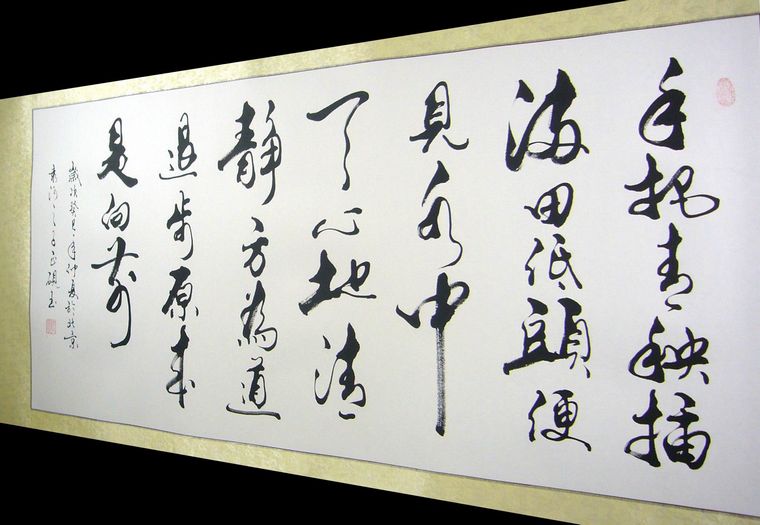 手把青秧插
滿田低頭便
見水中
天心地清
静方為道
退步原来
是向前
歲次癸巳年仲夏於北京